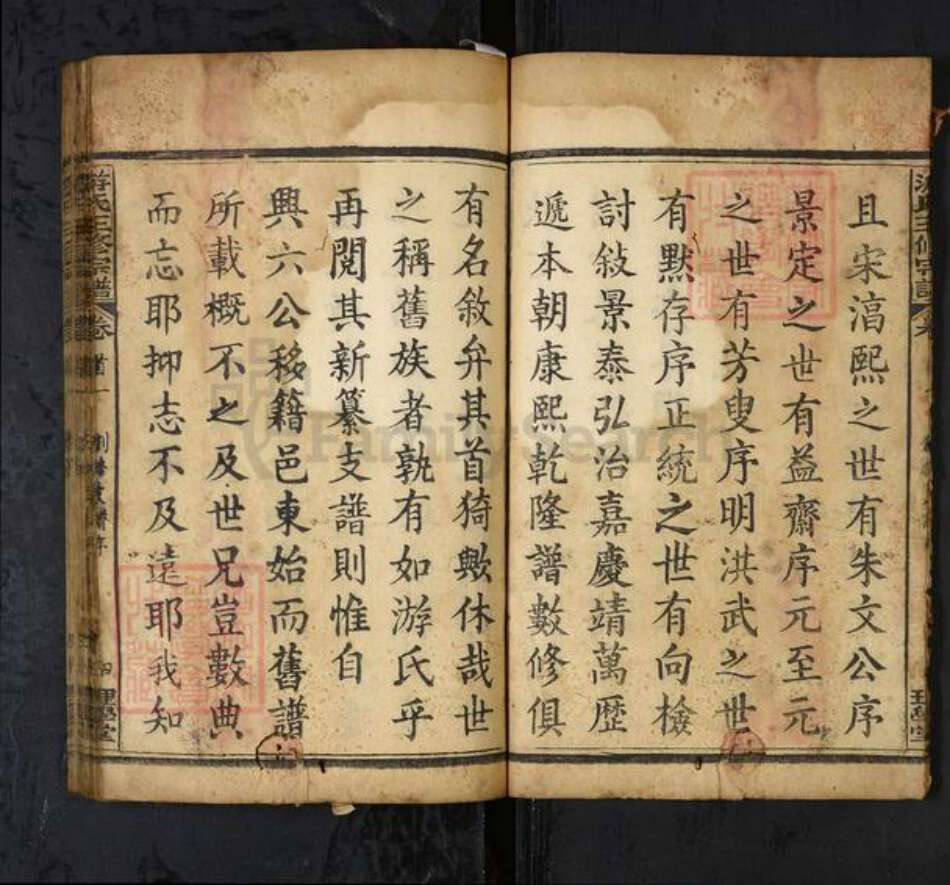 且宋淯熙之世有朱文公序
景定之世有益齋序元至元
之世有芳叟序明洪武之世
有默存序正統之世有向檢
討敍景泰弘治嘉慶靖萬歷
遞本朝康熙乾隆譜數修俱
有名敘弁其首猗歟休哉世
之稱舊族者孰有如游氏乎
再閱其新纂支譜則惟自
興六公移籍邑東始而舊譜
所載概不之及世兄豈數典
而忘耶抑志不及遠耶我知
游氏三修宗譜
卷首一
四
理學堂
FamilySearch